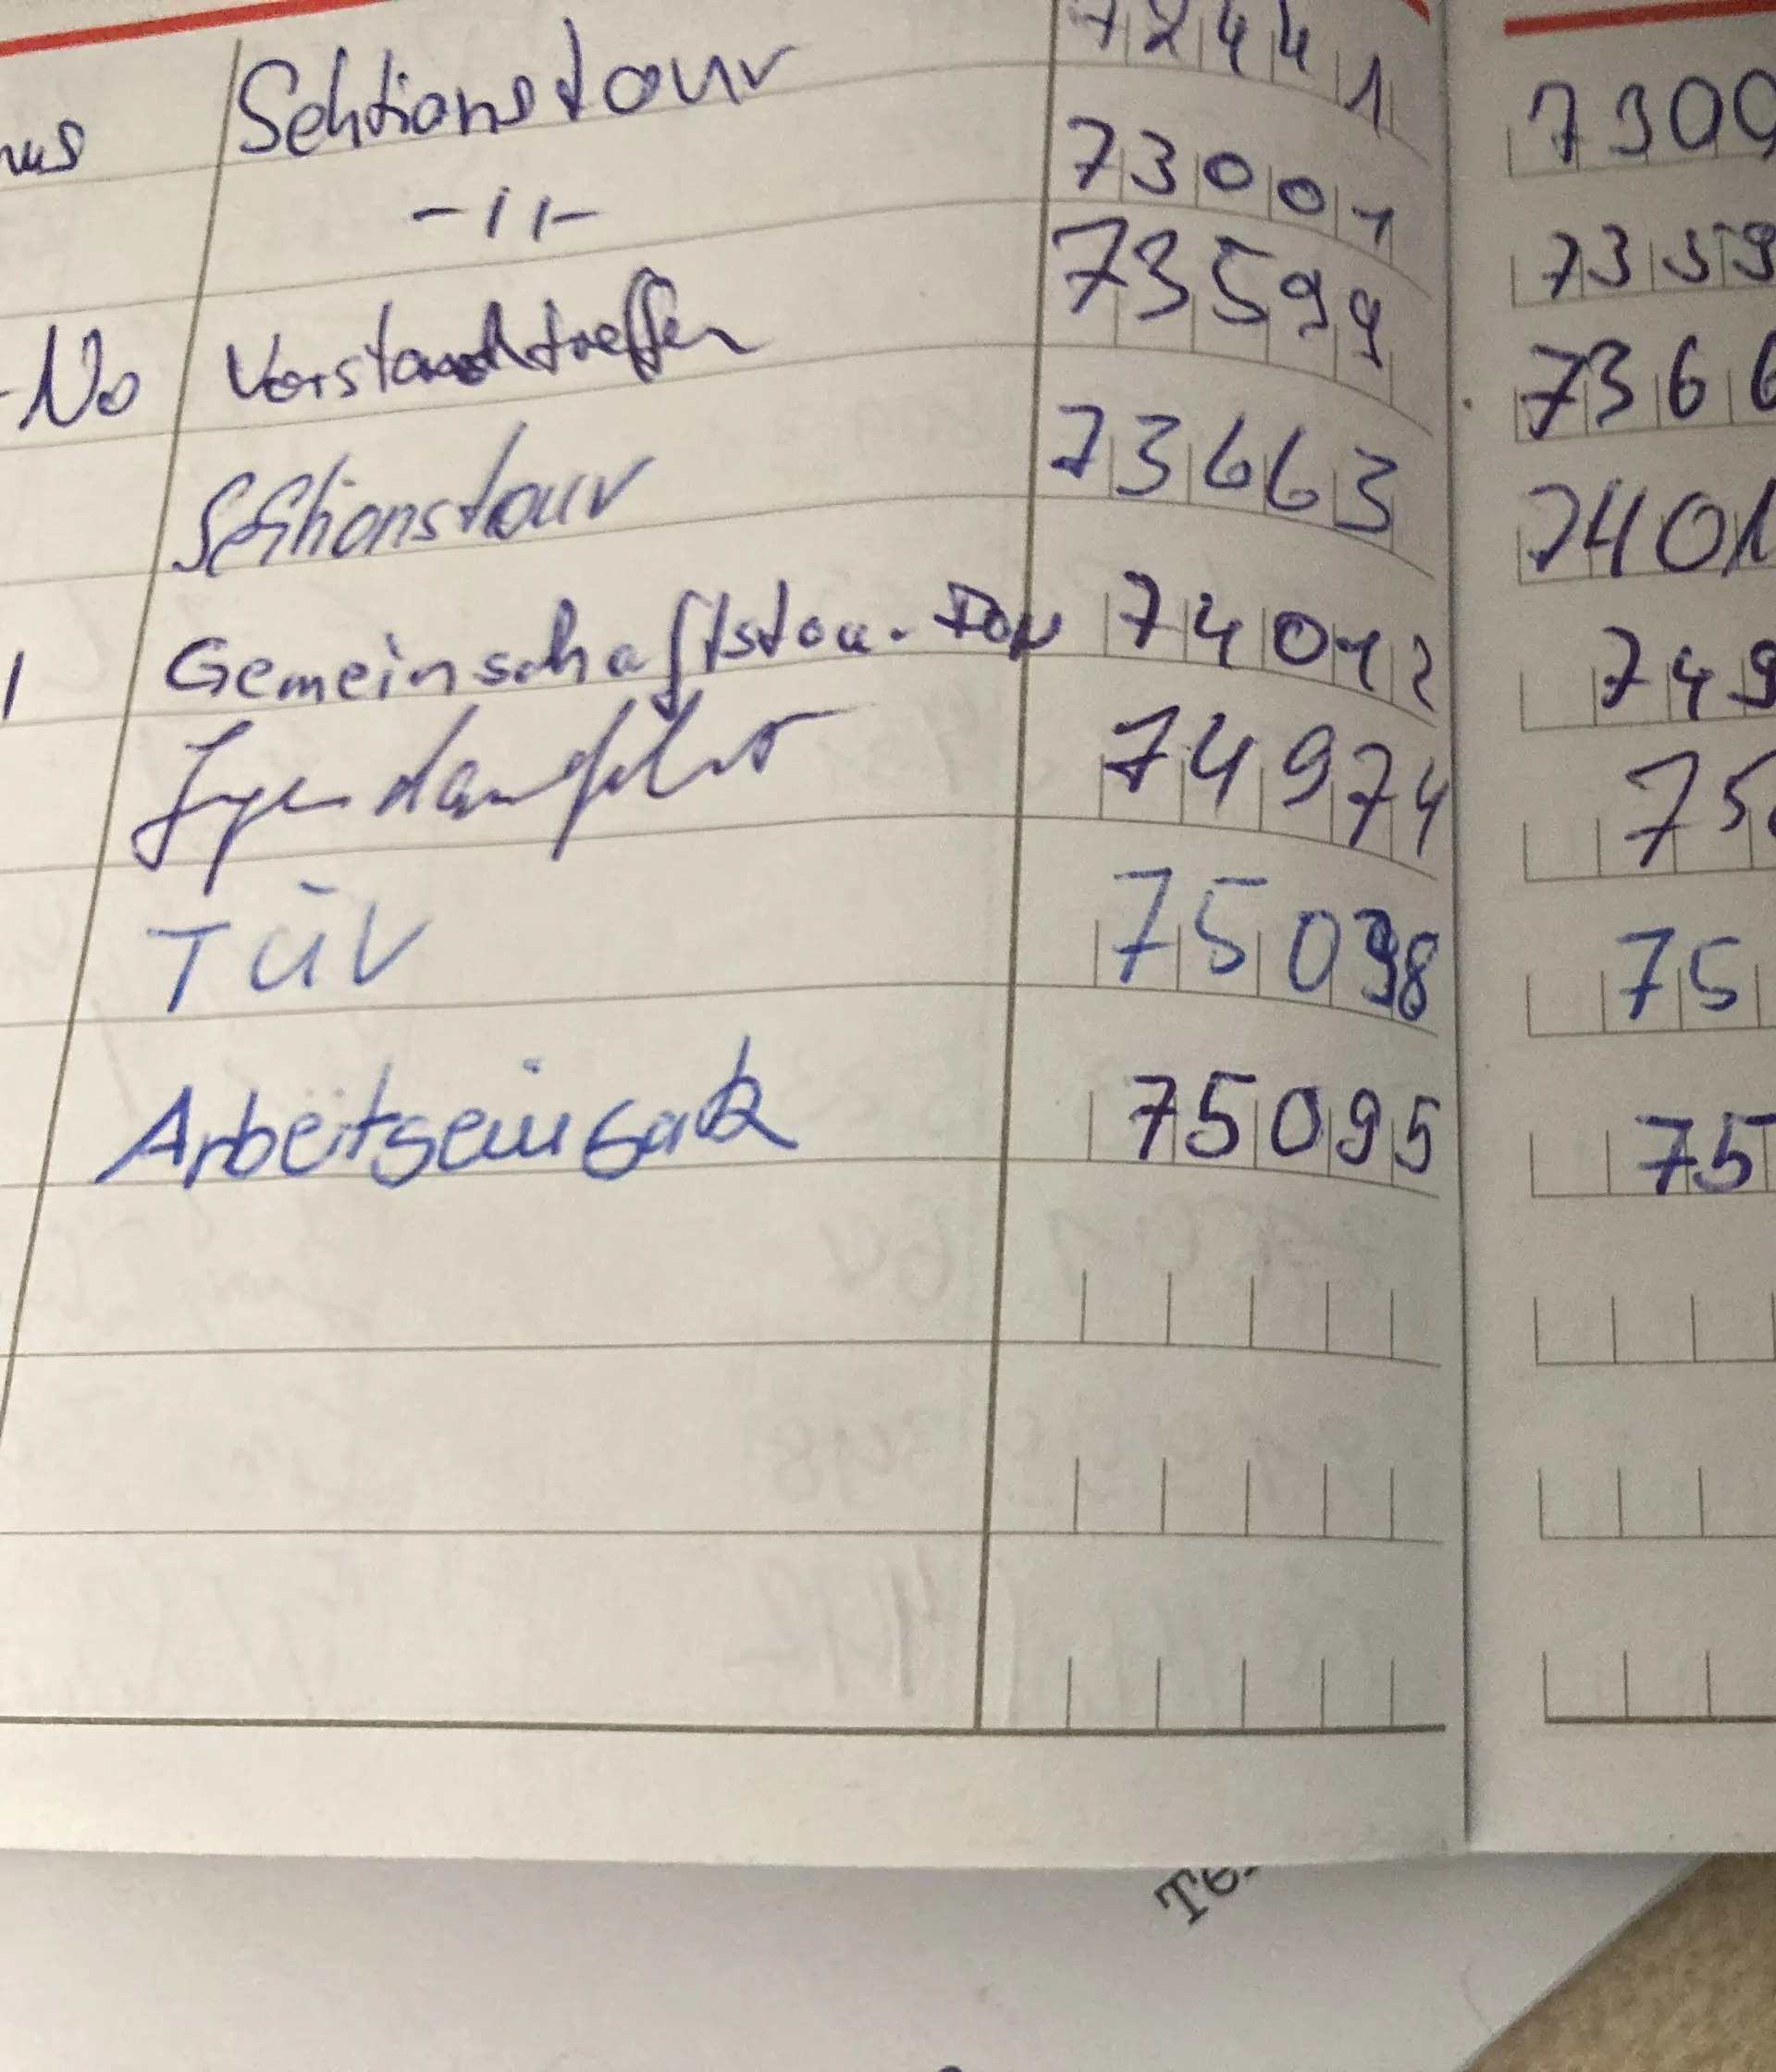 Sektionstour 72441 7300
-11- 73001 7359
No Vorstandtreffen 73599 7366
Sektionstour 73663 7401
1 Gemeinschaftstou. 74012 749
74974 75
TÜV 75098 75
Arbeitseinsatz 75095 75